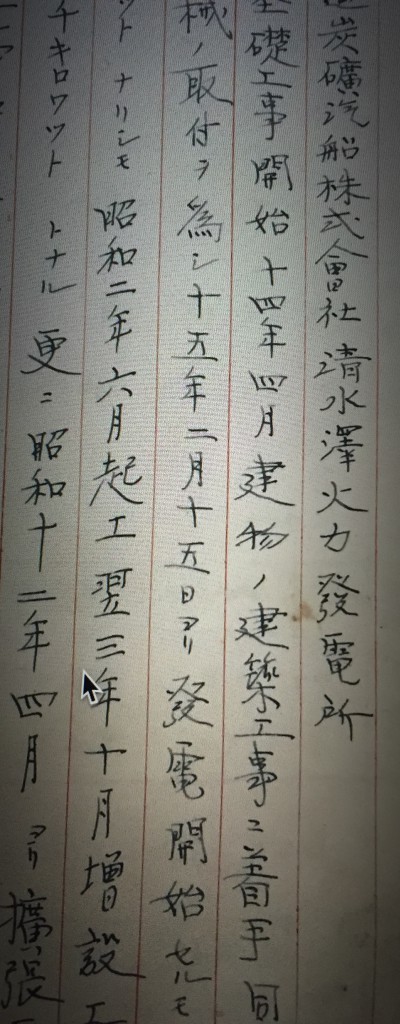 炭礦汽船株式會社清水澤火力發電所
礎工事開始十四年四月建物ノ建築工事ニ着手同
械ノ取付ヲ為シ十五年二月十五日ヨリ發電開始セルモ
ット ナリシモ 昭和二年六月起工翌三年十月增設工
チキロワット トナル 更ニ昭和十二年四月ヨリ擴張